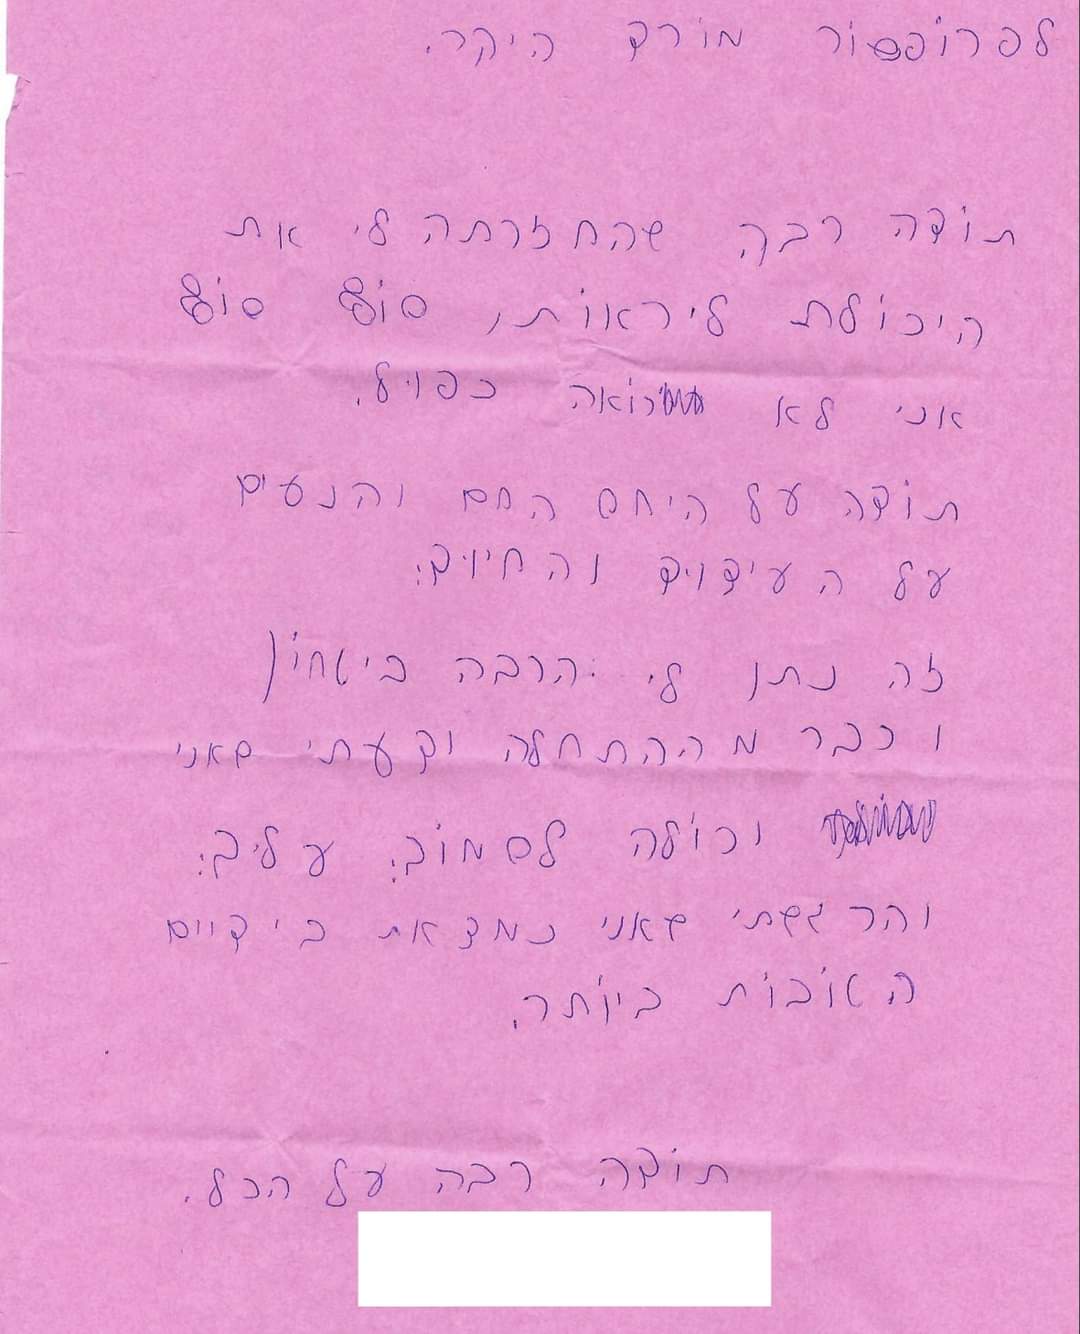 לפרופסור מורד היקר.
תודה רבה שהחזרתה לי את
היכולת ליראות, סוף סוף
אני לא רואה כפול.
תודה על היחס החם והנעים
על העידוד והחיוך.
זה נתן לי הרבה ביטחון
וכבר מההתחלה ידעתי שאני
יכולה לסמוך עליך.
והרגשתי שאני נמצאת בידיים
הטובות ביותר.
תודה רבה על הכל.